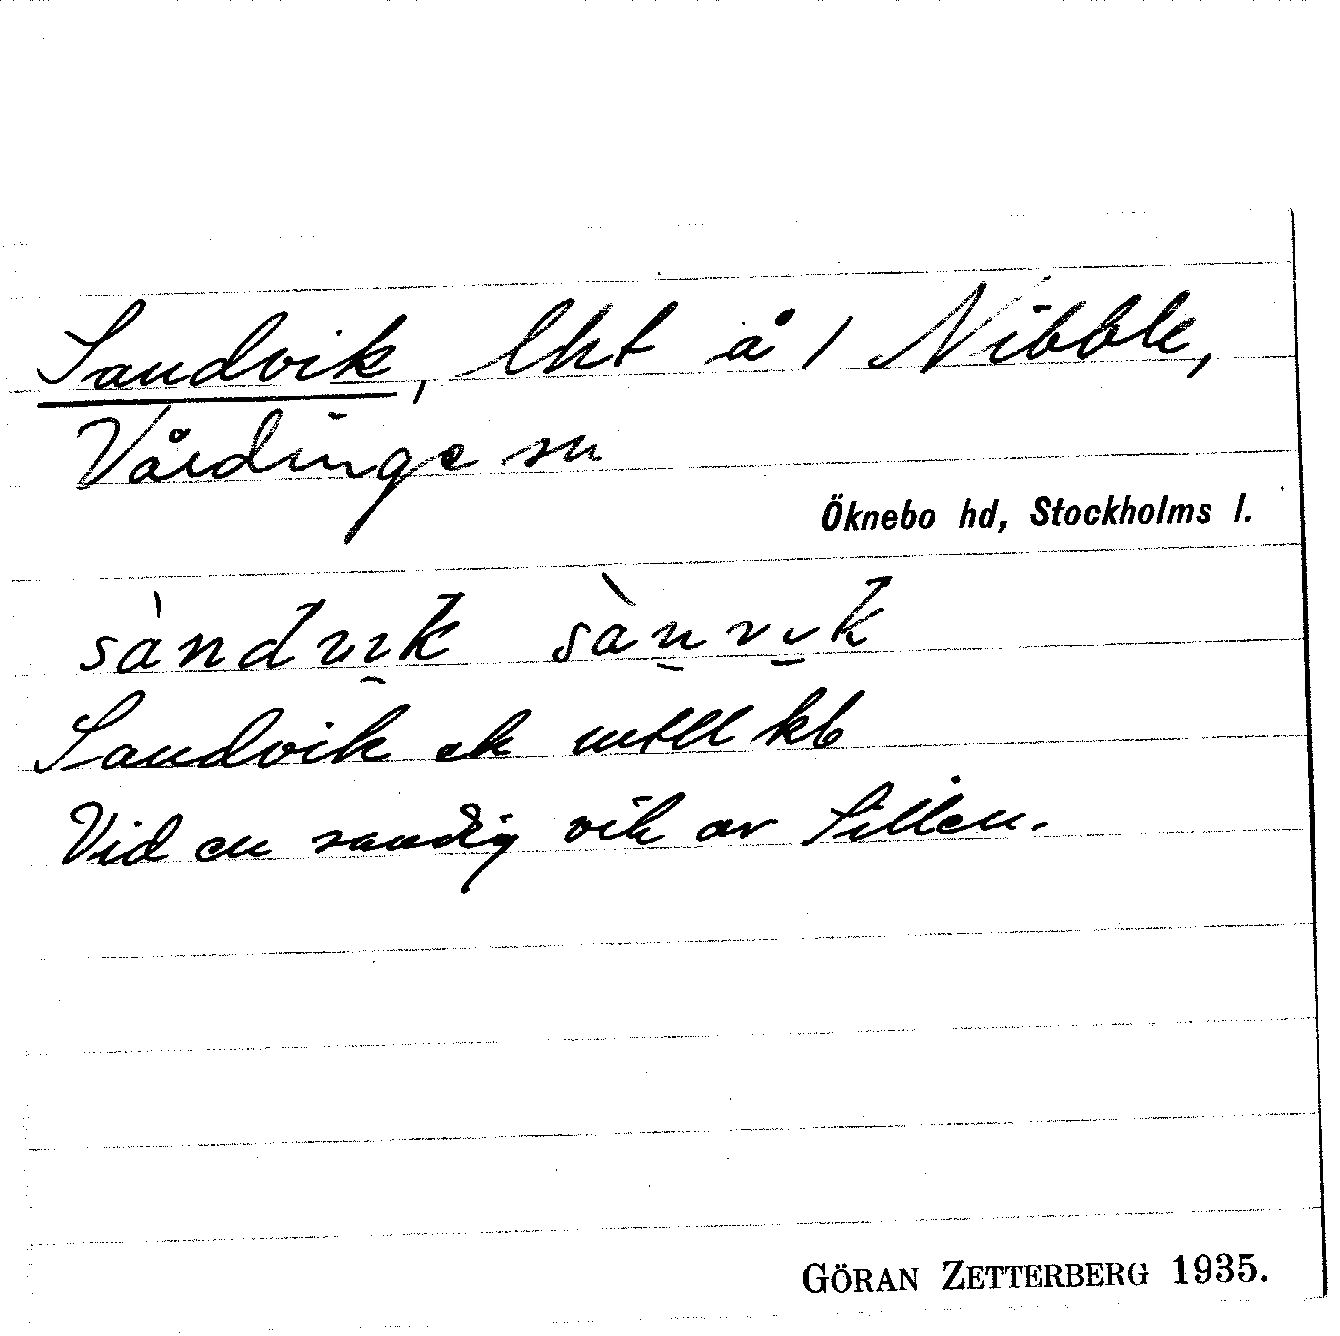 Sandvik, lht å 1 Nibble,
Vårdinge sn
Öknebo hd, Stockholms l.
sàndvık sànvık
Sandvik ek kb
Vid en sandig vik av Sillen.
GÖRAN ZETTERBERG 1935.